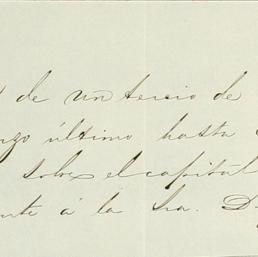 de un tercio de
último hasta
sobre el capital
á la Sra. D